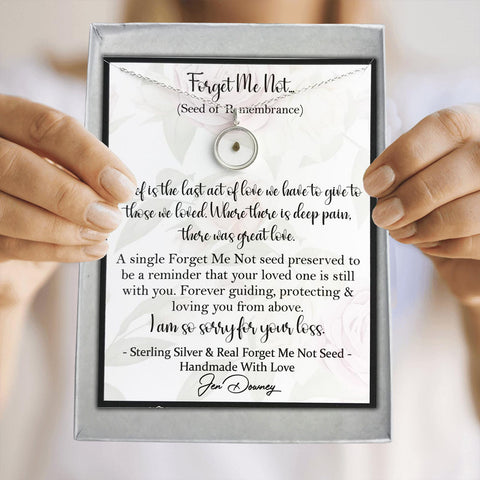 Forget Me Not...
(Seed of Remembrance)
is the last act of love we have to give to
those we loved. Where there is deep pain,
there was great love.
A single Forget Me Not seed preserved to
be a reminder that your loved one is still
with you. Forever guiding, protecting &
loving you from above.
I am so sorry for your loss.
- Sterling Silver & Real Forget Me Not Seed -
Handmade With Love
Jen Downey